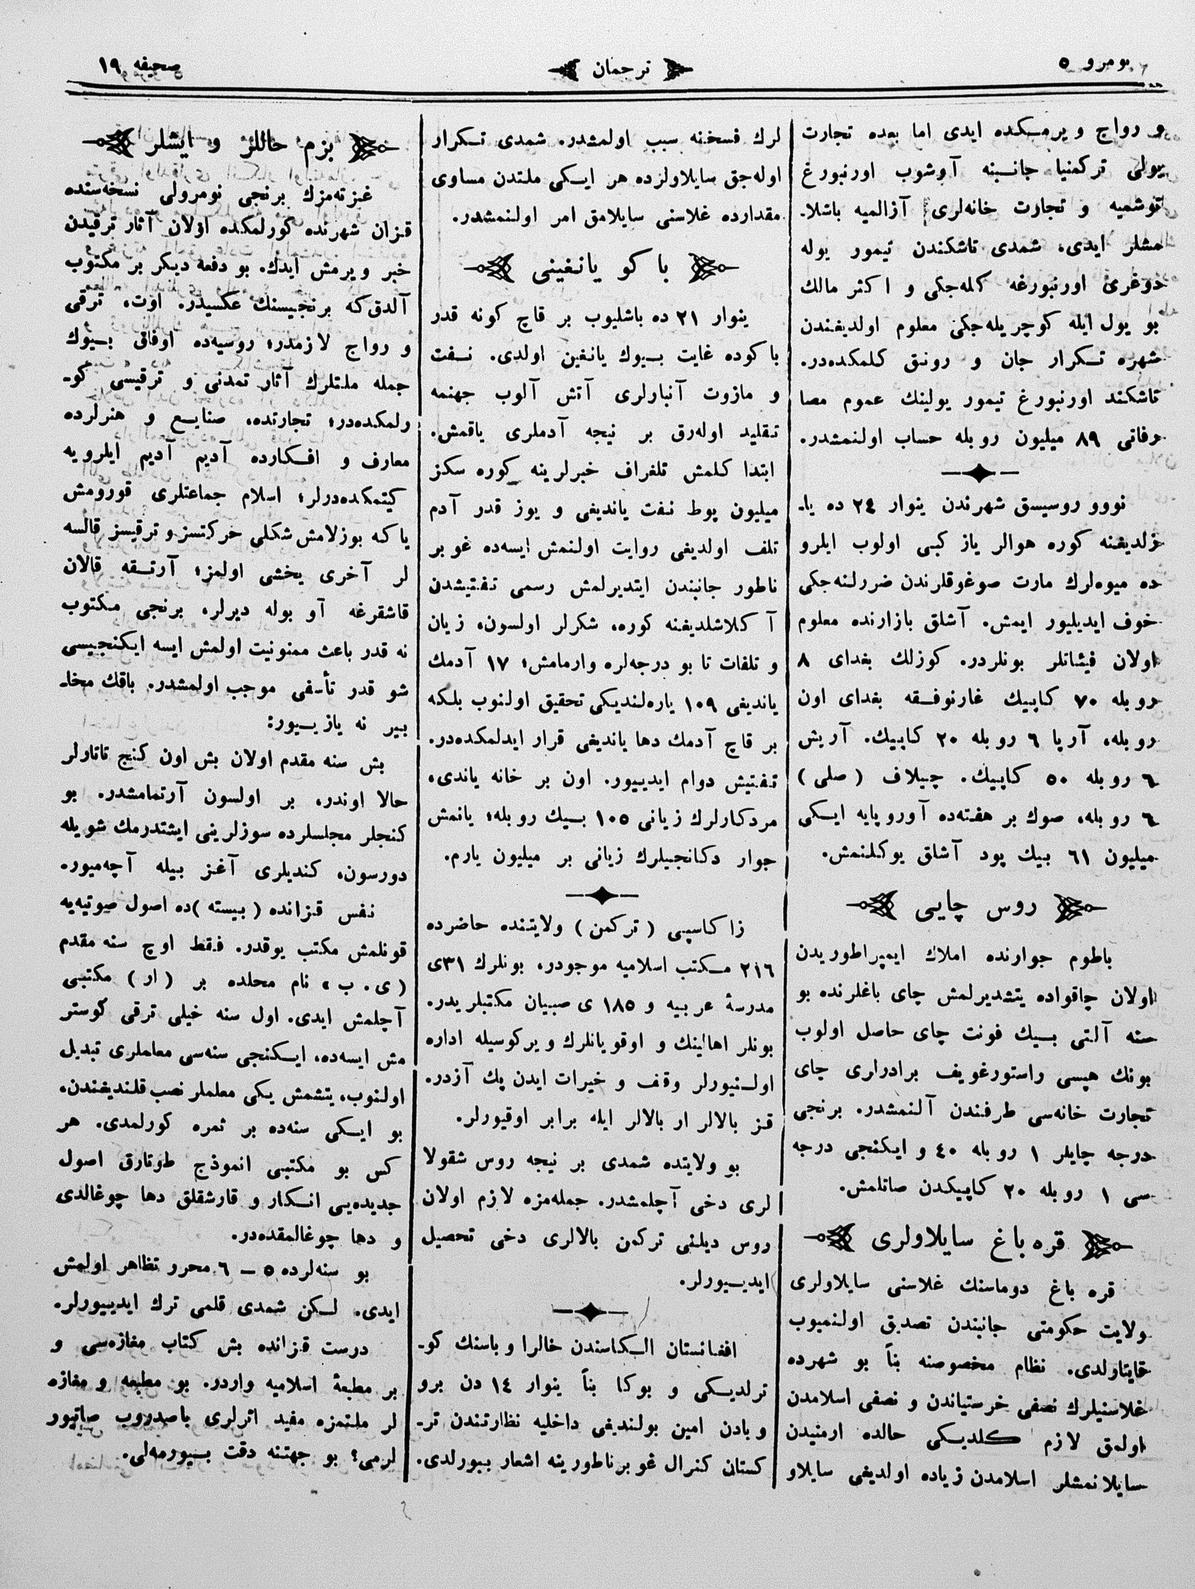 نومرو ٥
ترجمان
صحيفه ١٩
و رواج ويرمكده ايدى اما بعده تجارت
يولى تركمنيا جانبنه آوشوب اورنبورغ
توشميه و تجارت خانه‌لرى آزالميه باشلا-
مشلر ايدى، شمدى تاشكندن تيمور يوله
دوغرى اورنبورغه كله‌جكى و اكثر مالك
بو يول ايله كوچريله‌جكى معلوم اولديغندن
شهره تكرار جان و رونق كلمكده‌در.
تاشكند اورنبورغ تيمور يولينك عموم مصا
رفاتى ٨٩ ميليون روبله حساب اولنمشدر.
نووو روسيسق شهرندن ينوار ٢٤ ده يا-
زلديغنه كوره هوالر ياز كبى اولوب ايلرو
ده ميوه‌لرك مارت صوغوقلرندن ضررلنه‌جكى
خوف ايديليور ايمش. آشلق بازارنده معلوم
اولان فيئاتلر بونلردر. كوزلك بغداى ٨
روبله ٧٠ كاپيك غارنوفقه بغداى اون
روبله، آرپا ٦ روبله ٢٠ كاپيك. آريش
٦ روبله ٥٠ كاپيك. چيلاف (صلى)
٦ روبله، صوك بر هفته‌ده آوروپايه ايكى
ميليون ٦١ بيك پود آشلق يوكلنمش.
روس چايى
باطوم جوارنده املاك ايمپراطوريدن
اولان چاقواده يتشديرلمش چاى باغلرنده بو
سنه آلتى بيك فونت چاى حاصل اولوب
بونك هپسى راستورغويف برادرارى چاى
تجارت خانه‌سى طرفندن آلنمشدر. برنجى
درجه چايلر ١ روبله ٤٠ و ايكنجى درجه
سى ١ روبله ٢٠ كاپيكدن صاتلمش.
قره باغ سايلاولرى
قره باغ دوماسنك غلاسنى سايلاولرى
ولايت حكومتى جانبندن تصديق اولنميوب
قايتاولدى. نظام مخصوصنه بناً بو شهرده
غلاسنيلرك نصفى خرستياندن و نصفى اسلامدن
اولمق لازم كلديكى حالده ارمنيدن
سايلانمشلر اسلامدن زياده اولديغى سايلاو
لرك فسخنه سبب اولمشدر. شمدى تكرار
اوله‌جق سايلاولرده هر ايكى ملتدن مساوى
مقدارده غلاسنى سايلامق امر اولنمشدر.
باكو يانغينى
ينوار ٢١ ده باشليوب بر قاچ كونه قدر
باكوده غايت بيوك يانغين اولدى. نفت
و مازوت آنبارلرى آتش آلوب جهنمه
تقليد اوله‌رق بر نيجه آدملرى ياقمش.
ابتدا كلمش تلغراف خبرلرينه كوره سكز
ميليون پوط نفت يانديغى و يوز قدر آدم
تلف اولديغى روايت اولنمش ايسه‌ده غوبر
ناطور جانبندن ايتديرلمش رسمى تفتيشدن
آكلاشلديغنه كوره، شكرلر اولسون، زيان
و تلفات تا بو درجه‌لره وارمامش؛ ١٧ آدمك
يانديغى ١٠٩ ياره‌لنديكى تحقيق اولنوب بلكه
بر قاچ آدمك دها يانديغى قرار ايدلمكده‌در.
تفتيش دوام ايدييور. اون بر خانه ياندى،
مردكارلرك زيانى ١٠٥ بيك روبله؛ يانمش
جوار دكانجيلرك زيانى بر ميليون يارم.
زاكاسپى (تركمن) ولايتنده حاضرده
٢١٦ مكتب اسلاميه موجودر، بونلرك ٣١ى
مدرسهٔ عربيه و ١٨٥ ى صبيان مكتبلريدر.
بونلر اهالينك و اوقويانلرك ويركوسيله اداره
اولنيورلر وقف و خيرات ايدن پك آزدر.
قز بالالر ار بالالر ايله برابر اوقيورلر.
بو ولايتده شمدى بر نيجه روس شقولا
لرى دخى آچلمشدر. جمله‌مزه لازم اولان
روس ديلنى تركمن بالالرى دخى تحصيل
ايدييورلر.
افغانستان الكاسندن خالرا و باسنك كو-
ترلديكى و بوكا بناً ينوار ١٤ دن برو
وبادن امين بولنديغى داخليه نظارتندن تر-
كستان كنرال غوبرناطورينه اشعار بيورلدى.
بزم حاللر و ايشلر
غزته‌مزك برنجى نومرولى نسخه‌سنده
قزان شهرنده كورلمكده اولان آثار ترقيدن
خبر ويرمش ايدك. بو دفعه ديكر بر مكتوب
آلدق كه برنجيسنك عكسيدر. اوت، ترقى
و رواج لازمدر؛ روسيه‌ده اوفاقى بيوك
جمله ملتلرك آثار تمدنى و ترقيسى كو-
رلمكده‌در؛ تجارتده، صنايع و هنرلرده
معارف و افكارده آديم آديم ايلرويه
كيتمكده‌درلر؛ اسلام جماعتلرى قورومش
ياكه بوزلامش شكلى حركتسز و ترقيسز قالسه
لر آخرى يخشى اولمز؛ آرتقه قالان
قاشقرغه آو بوله ديرلر، برنجى مكتوب
نه قدر باعث ممنونيت اولمش ايسه ايكنجيسى
شو قدر تأسفى موجب اولمشدر. باقك مخا-
بير نه يازييور:
بش سنه مقدم اولان بش اون كنج تاتارلر
حالا اوندر، بر اولسون آرتمامشدر. بو
كنجلر مجلسلرده سوزلرينى ايشتدرمك شويله
دورسون، كنديلرى آغز بيله آچه‌ميور.
نفس قزانده (بيسته) ده اصول صوتيه‌يه
قونلمش مكتب يوقدر. فقط اوچ سنه مقدم
(ى. ب، نام محلده بر (ار) مكتبى
آچلمش ايدى. اول سنه خيلى ترقى كوستر
مش ايسه‌ده، ايكنجى سنه‌سى معاملرى تبديل
اولنوب، يتشمش يكى معلملر نصب قلنديغندن،
بو ايكى سنه‌ده بر ثمره كورلمدى. هر
كس بو مكتبى انموذج طوتارق اصول
جديده‌يى انكار و قارشقلق دها چوغالدى
و دها چوغالمقده‌در.
بو سنه‌لرده ٥ — ٦ محرر تظاهر اولمش
ايدى. لكن شمدى قلمى ترك ايدييورلر.
درست قزانده بش كتاب مغازه‌سى و
بر مطبعهٔ اسلاميه واردر. بو مطبعه و مغازه
لر ملتمزه مفيد اثرلرى باصدروب صاتيور
لرمى؟ بو جهتنه دقت بيورمه‌لى.